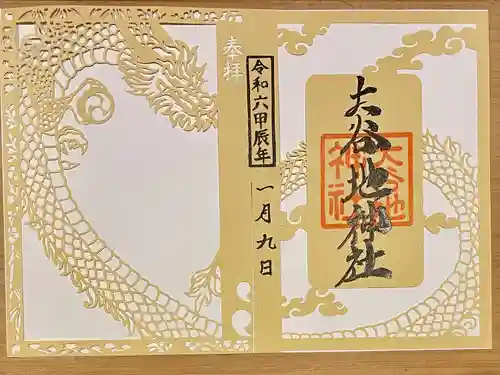 奉拝
令和六甲辰年
一月九日
大谷地神社
大谷地
神社